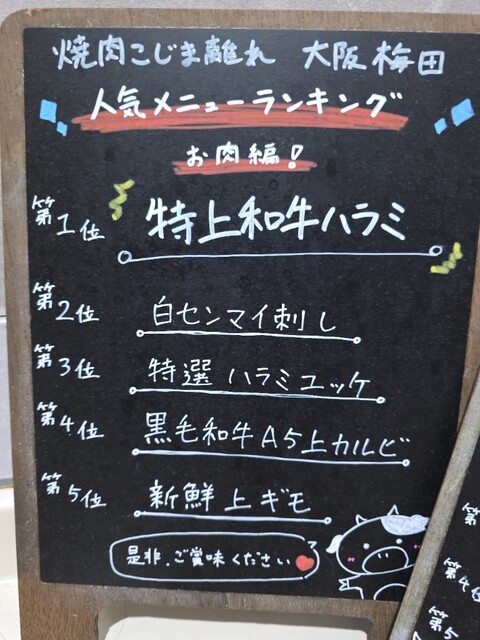 焼肉こじま離れ 大阪梅田
人気メニューランキング
お肉編!
第1位 特上和牛ハラミ
第2位 白センマイ刺し
第3位 特選ハラミユッケ
第4位 黒毛和牛A5上カルビ
第5位 新鮮上ギモ
是非、ご賞味ください
第
第4位
第5